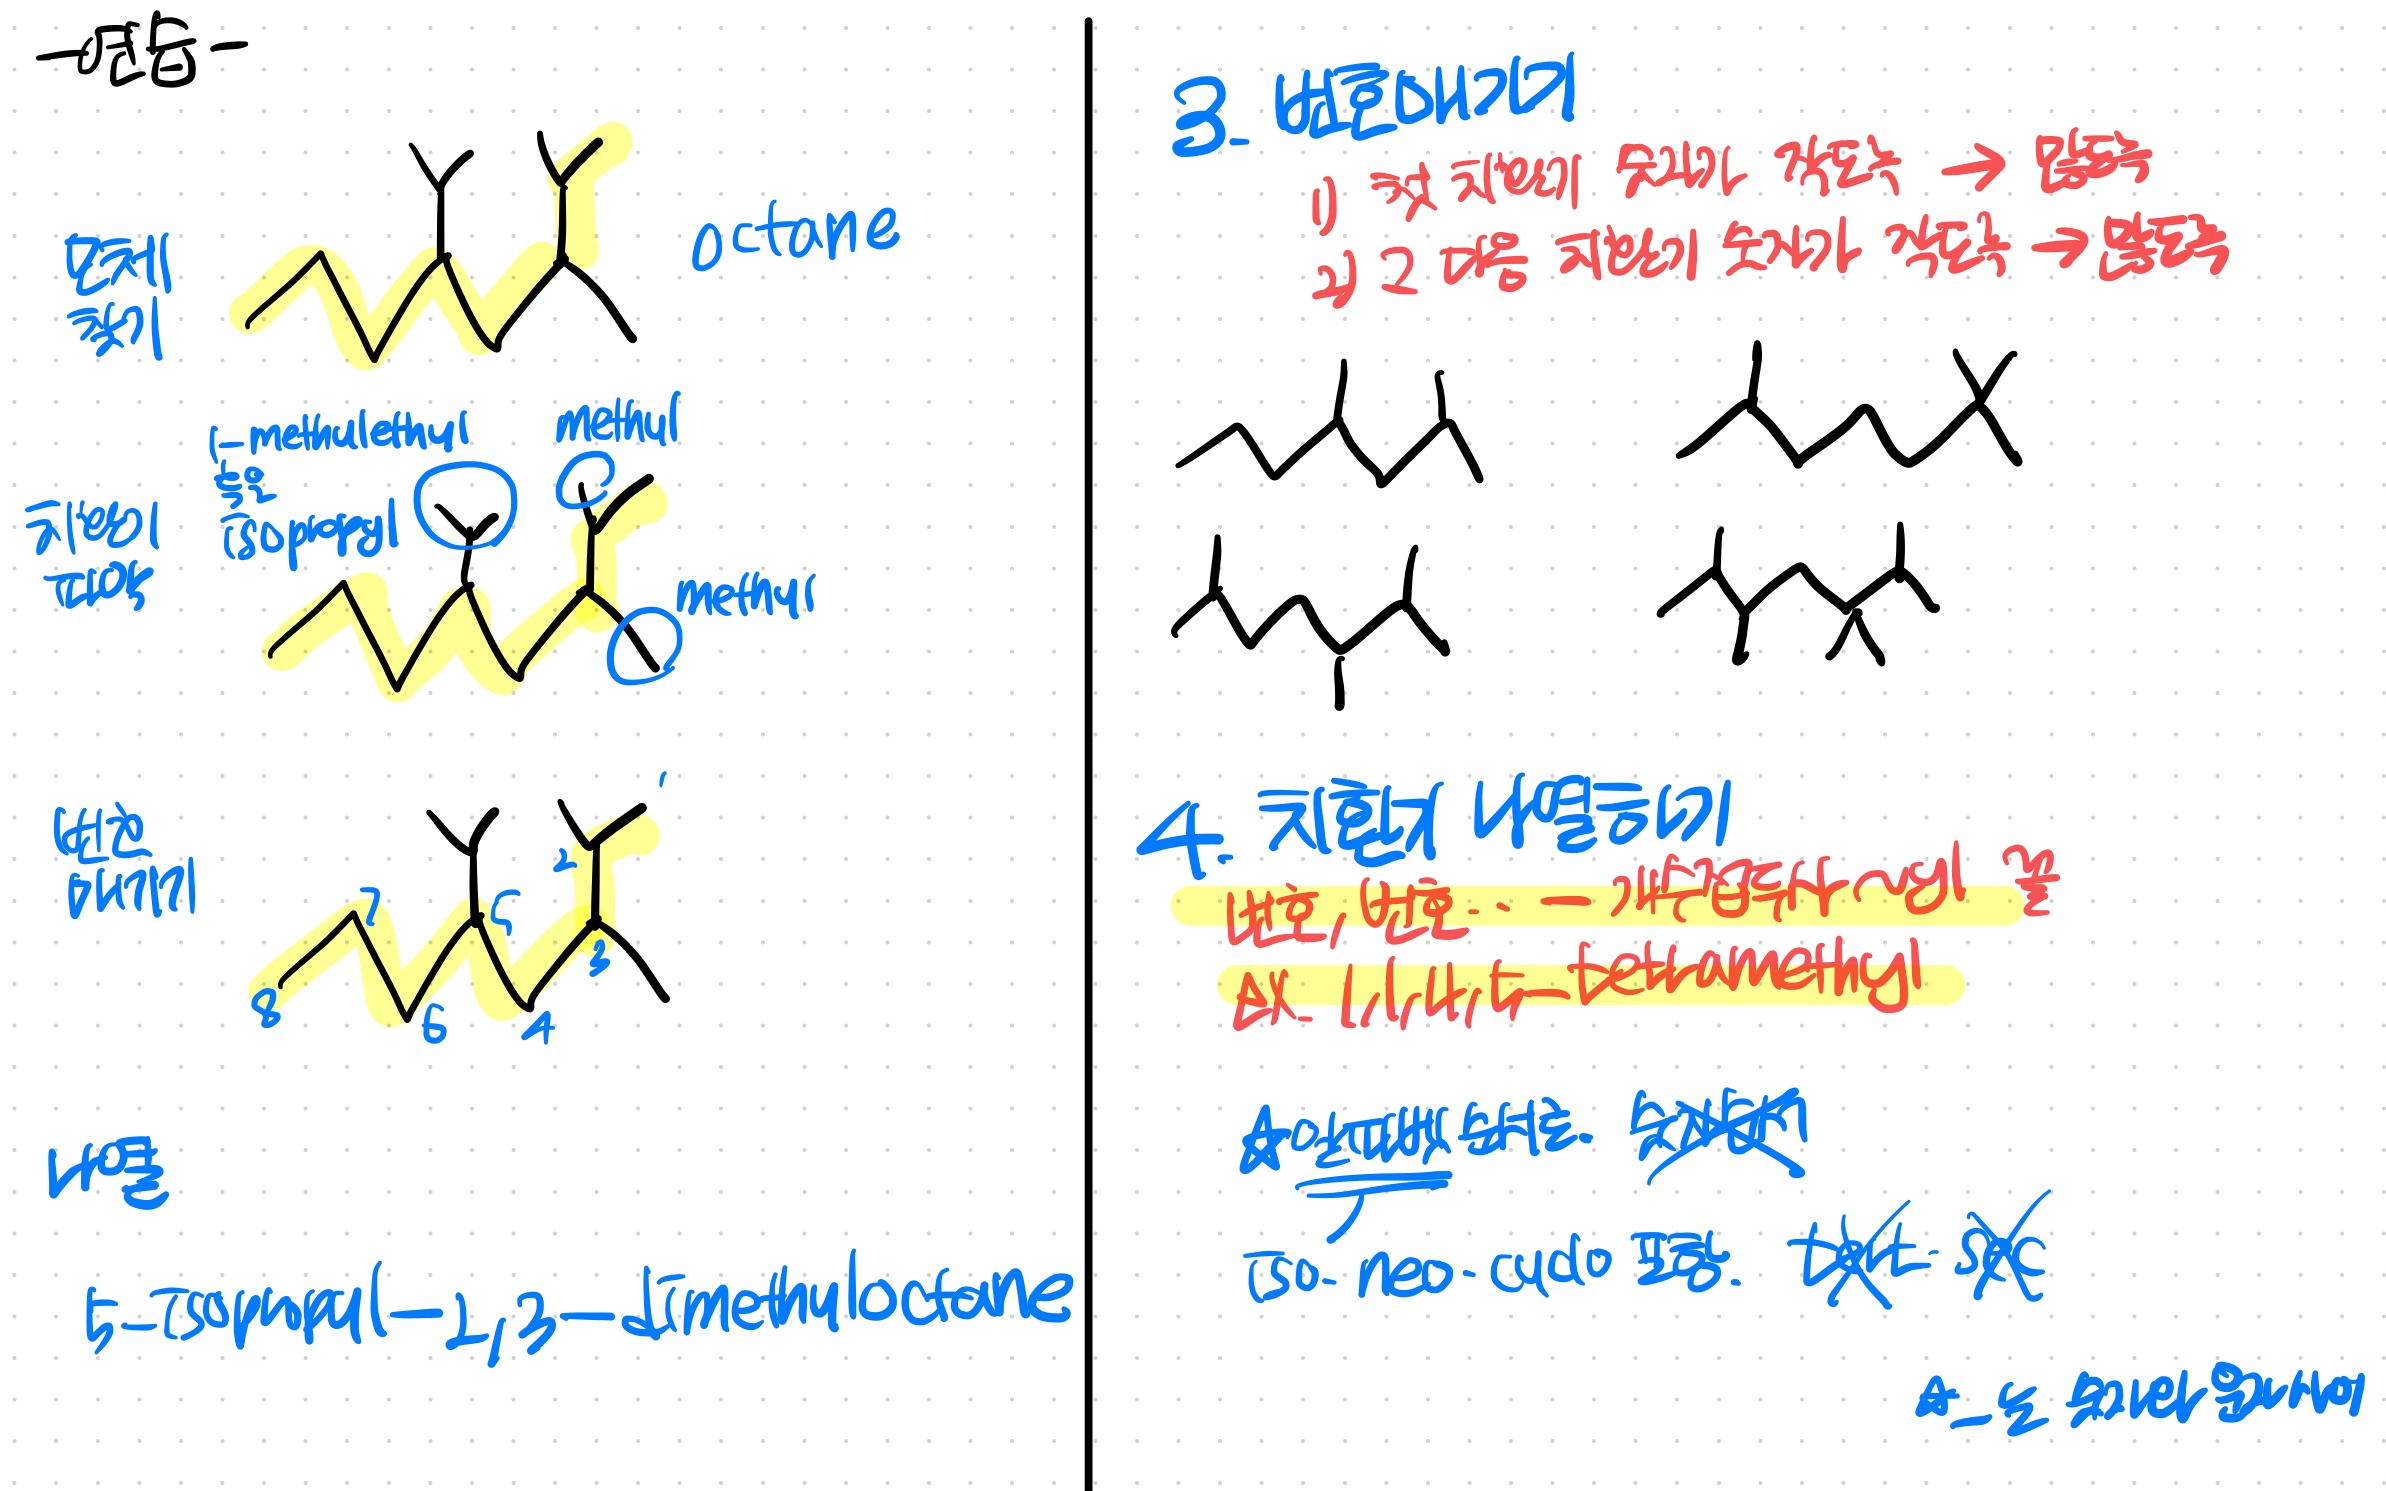 -연습-
octane
모체
찾기
1-methylethyl
또는
isopropyl
methyl
치환기
파악
methyl
번호
매기기
1
2
3
4
5
6
7
8
나열
5-isopropyl-2,3-dimethyloctane
3. 번호매기기
1) 첫 치환기 숫자가 작은쪽 → 왼쪽
2) 2 다음 치환기 숫자가 작은쪽 →
4. 치환기 나열하기
번호,번호.. - 개수접두 yl 꼴
ex. 1,1,4,5-tetramethyl
☆ 알파벳 순서로. 숫자
iso- neo- cyclo 포함. tert- sec